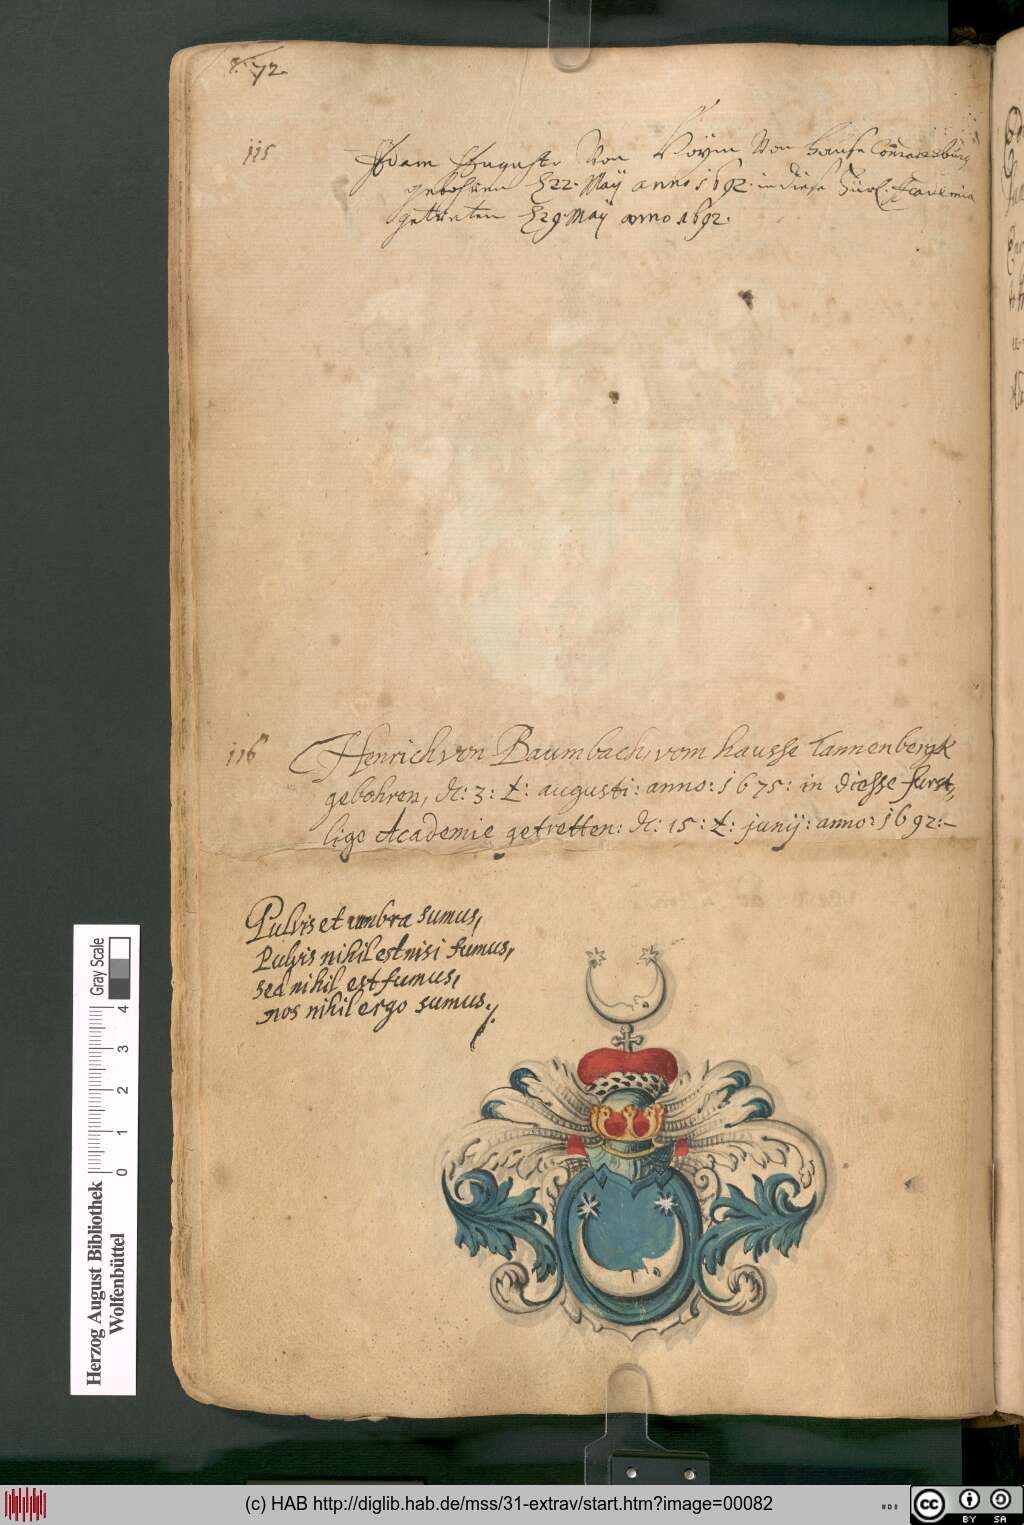 72.
115
Adam Auguste Von Hoÿm Von Hause Conradesbürg
gebohren d 22. Maÿ anno 1692. in diese Fürl. Academia
getreten d 29. Maÿ anno 1692.
116
Henrich von Baumbach, vom hausse Tannenbergk
gebohren, dc: 3: t: augusti: anno: 1675: in diesse furst,,
lige Academie getretten: dc: 15: t: junij: anno: 1692:–
Pulvis et umbra sumus,
Pulvis nihil est nisi fumus,
sed nihil est fumus,
nos nihil ergo sumus.
Herzog August Bibliothek
Wolfenbüttel
Gray Scale
0 1 2 3 4
(c) HAB http://diglib.hab.de/mss/31-extrav/start.htm?image=00082
cc BY SA